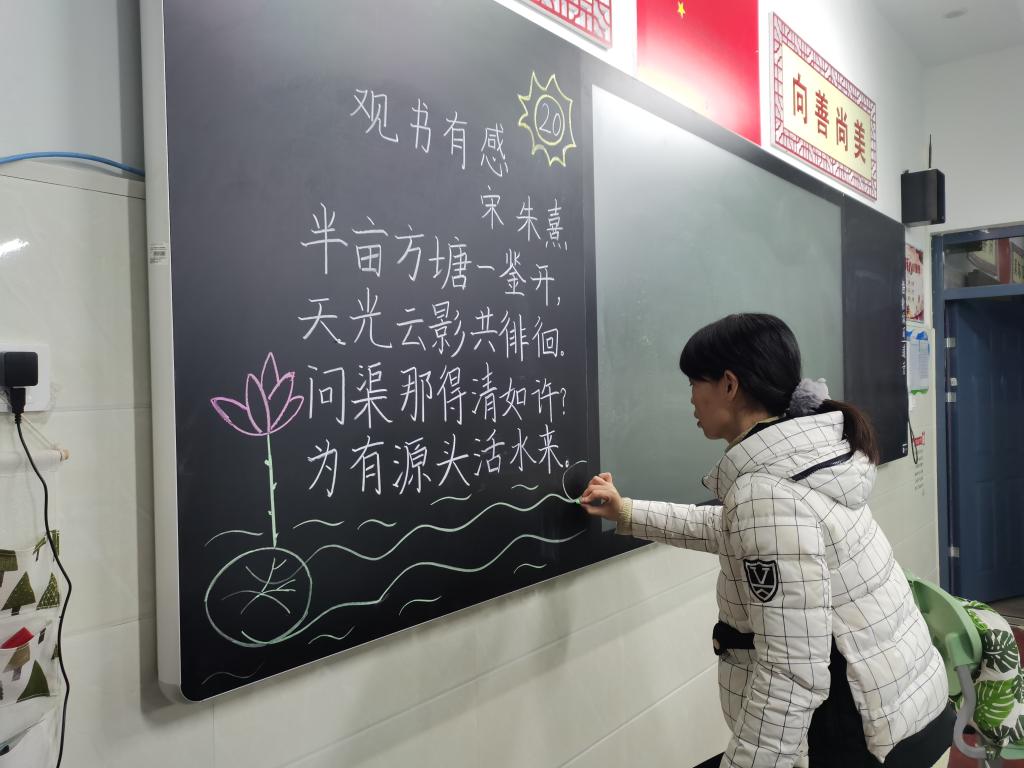 观书有感
20
宋 朱熹
半亩方塘一鉴开,
天光云影共徘徊.
问渠那得清如许?
为有源头活水来.
向善尚美
V